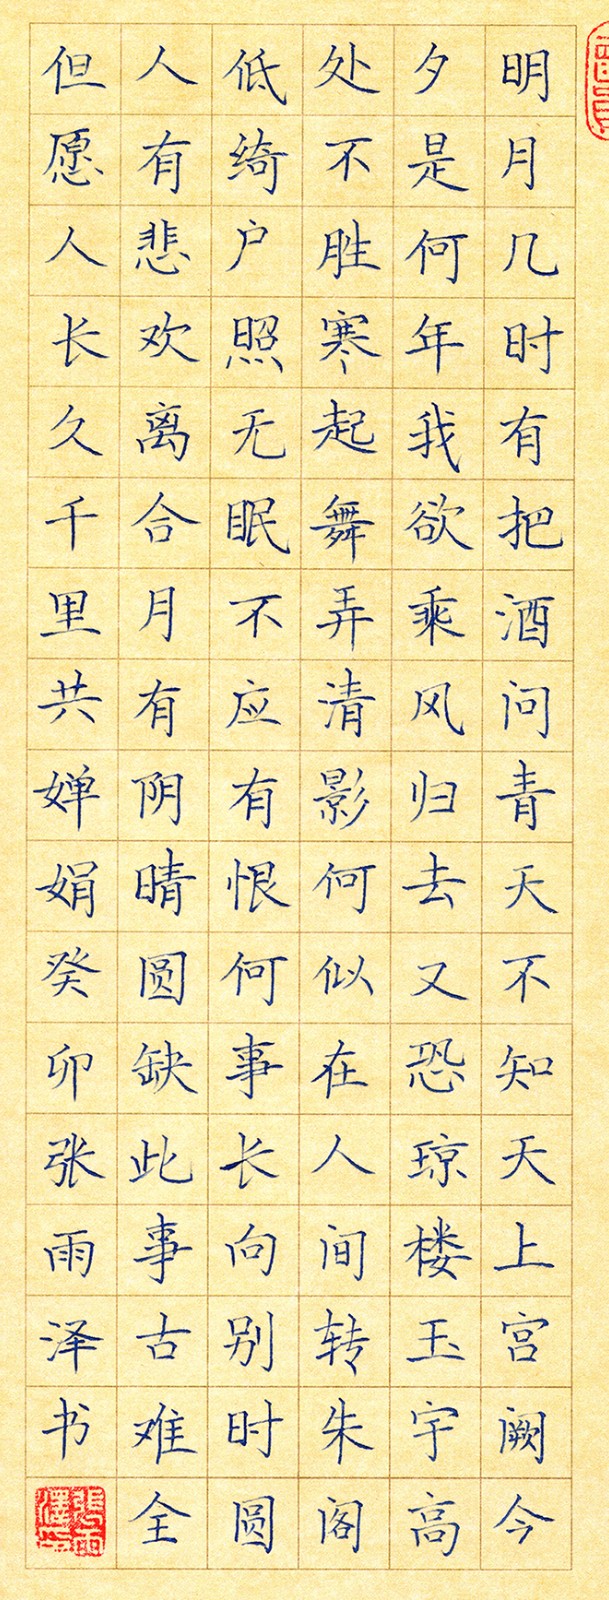 明月几时有把酒问青天不知天上宫阙今
夕是何年我欲乘风归去又恐琼楼玉宇高
处不胜寒起舞弄清影何似在人间转朱阁
低绮户照无眠不应有恨何事长向别时圆
人有悲欢离合月有阴晴圆缺此事古难全
但愿人长久千里共婵娟癸卯张雨泽书